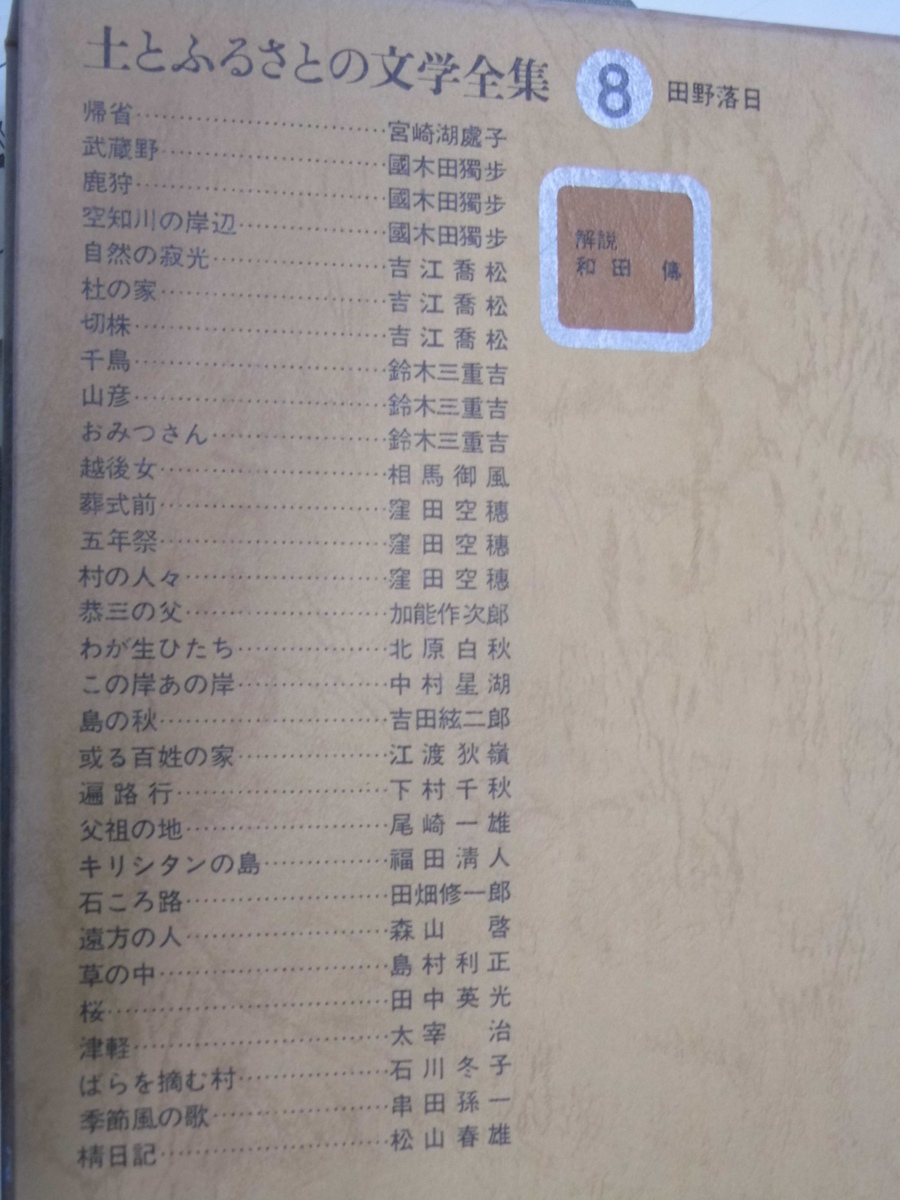 土とふるさとの文学全集 8 田野落日
解説
和田 傳
帰省……宮崎湖處子
武蔵野……國木田獨步
鹿狩……國木田獨步
空知川の岸辺……國木田獨步
自然の寂光……吉江喬松
杜の家……吉江喬松
切株……吉江喬松
千鳥……鈴木三重吉
山彦……鈴木三重吉
おみつさん……鈴木三重吉
越後女……相馬御風
葬式前……窪田空穗
五年祭……窪田空穗
村の人々……窪田空穗
恭三の父……加能作次郎
わが生ひたち……北原白秋
この岸あの岸……中村星湖
島の秋……吉田絃二郎
或る百姓の家……江渡狄嶺
遍路行……下村千秋
父祖の地……尾崎一雄
キリシタンの島……福田淸人
石ころ路……田畑修一郎
遠方の人……森山 啓
草の中……島村利正
桜……田中英光
津軽……太宰 治
ばらを摘む村……石川冬子
季節風の歌……串田孫一
棈日記……松山春雄